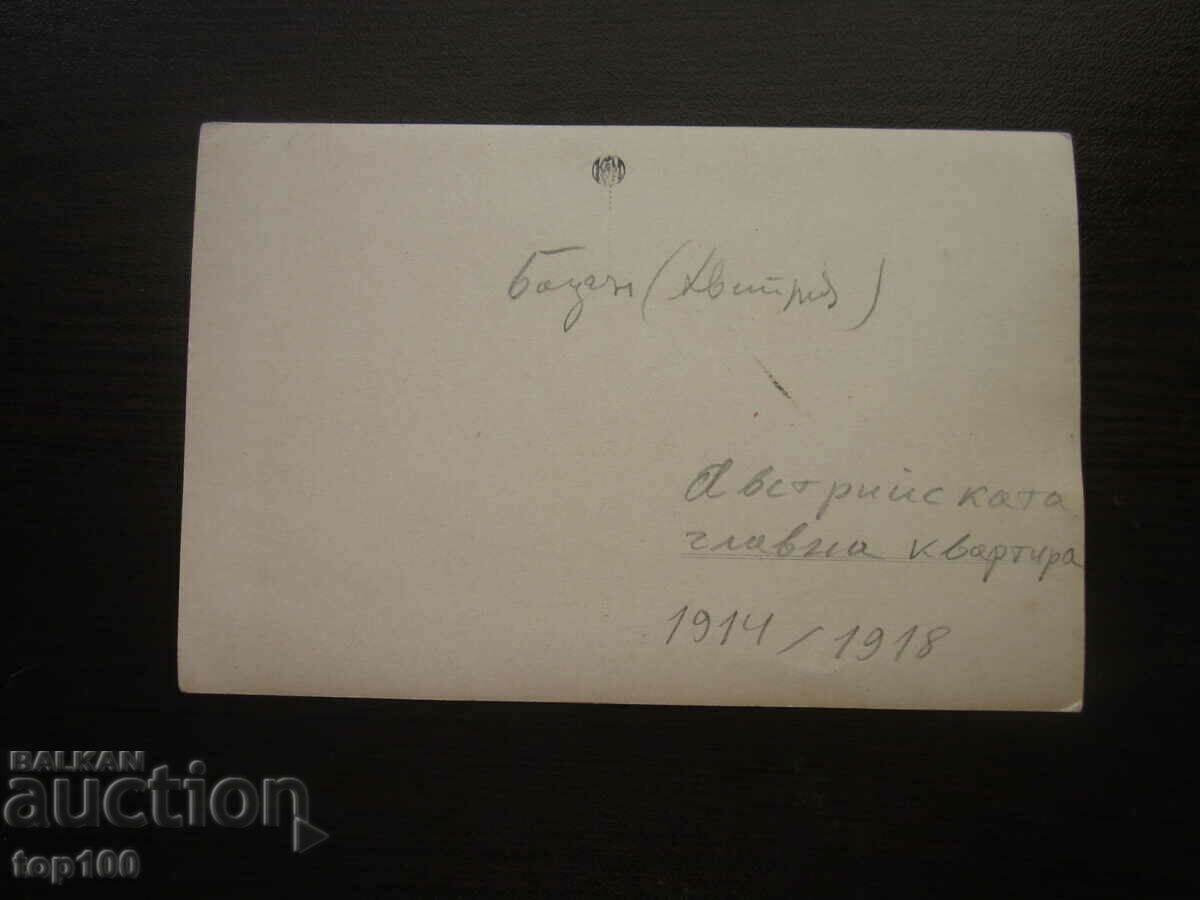 (Австрия)
Австрийската
главна квартира
1914 / 1918
BALKAN
auction
top100